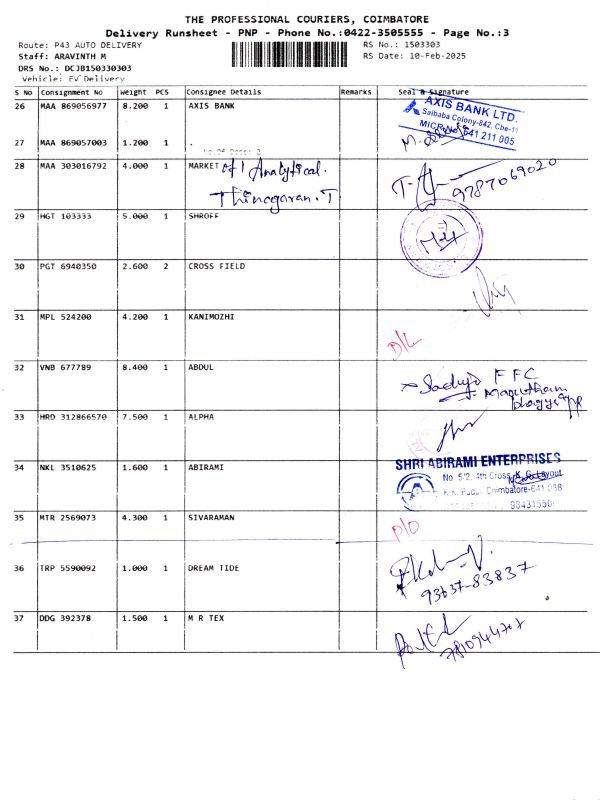 THE PROFESSIONAL COURIERS, COIMBATORE
Delivery Runsheet - PNP - Phone No.:0422-3505555 - Page No.:3
Route: P43 AUTO DELIVERY RS No.: 1503303
Staff: ARAVINTH M RS Date: 10-Feb-2025
DRS No.: DCJB150330303
Vehicle: EV Delivery
S No Consignment No Weight PCS Consignee Details Remarks Seal & Signature
26 MAA 869056977 8.200 1 AXIS BANK
AXIS BANK LTD.
Saibaba Colony-842, Cbe-11
MICR No. 641 211 005
27 MAA 869057003 1.200 1 .
28 MAA 303016792 4.000 1 MARKET of 1 Analytical.
Thinagaran.T
9787069020
29 HGT 103333 5.000 1 SHROFF
30 PGT 6940350 2.600 2 CROSS FIELD
31 MPL 524200 4.200 1 KANIMOZHI
D/L
32 VNB 677789 8.400 1 ABDUL
FFC
33 HRD 312866570 7.500 1 ALPHA
34 NKL 3510625 1.600 1 ABIRAMI
SHRI ABIRAMI ENTERPRISES
No 5/2, 4th Cross, K.G. Layout
Coimbatore-641 038
35 MTR 2569073 4.300 1 SIVARAMAN
D/O
36 TRP 5590092 1.000 1 DREAM TIDE
93637-83837
37 DDG 392378 1.500 1 M R TEX